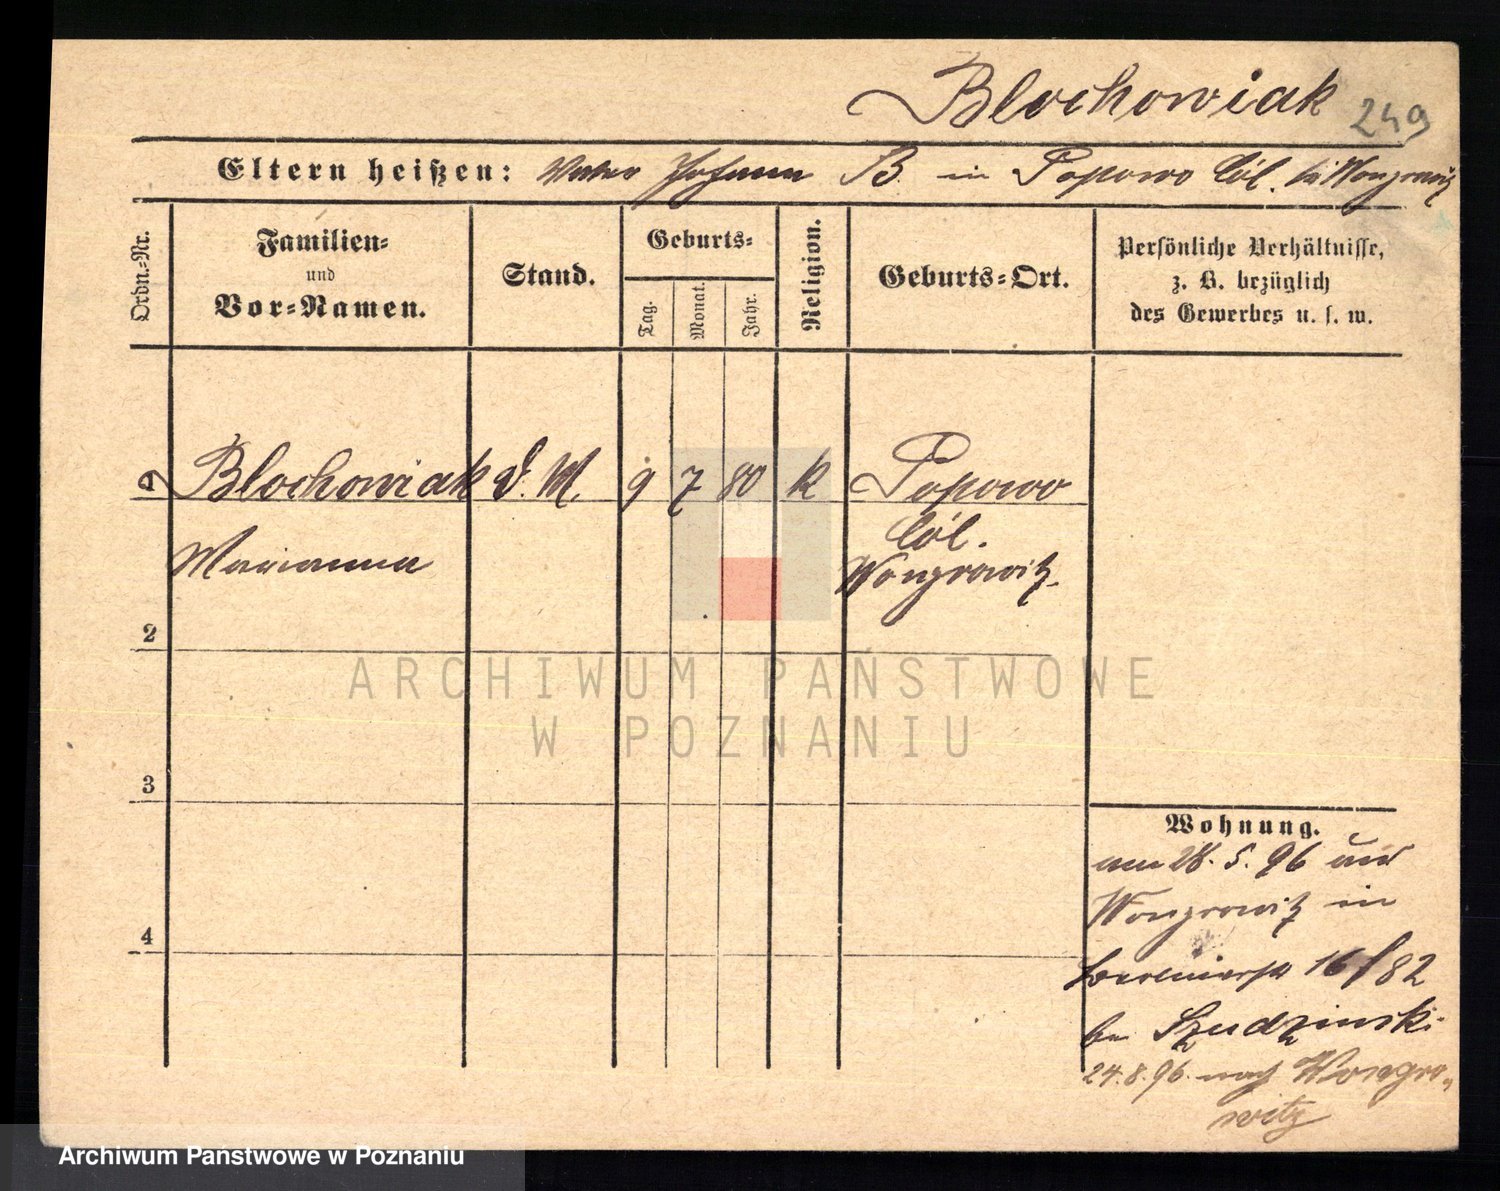 Blochowiak 249
Eltern heißen: Vater Johann B. in Popowo Col. bei Wongrowitz
Ordn.-Nr.
Familien-
und
Vor-Namen.
Stand.
Geburts-
Tag.
Monat.
Jahr.
Religion.
Geburts-Ort.
Persönliche Verhältnisse,
z. B. bezüglich
des Gewerbes u. s. w.
1 Blochowiak D. M. 9 7 80 k Popowo
Col.
Marianna Wongrowitz
2
3
4
Wohnung.
am 28. 5. 96 aus
Wongrowitz in
16/82
bei Szudzinski
24.8.96. nach Wongro-
witz
ARCHIWUM PAŃSTWOWE
W POZNANIU
Archiwum Państwowe w Poznaniu